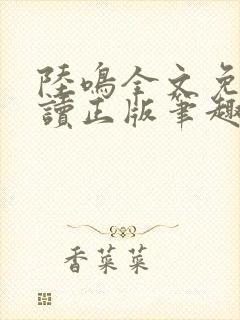 陸鳴全文免
讀正版筆趣
香菜菜